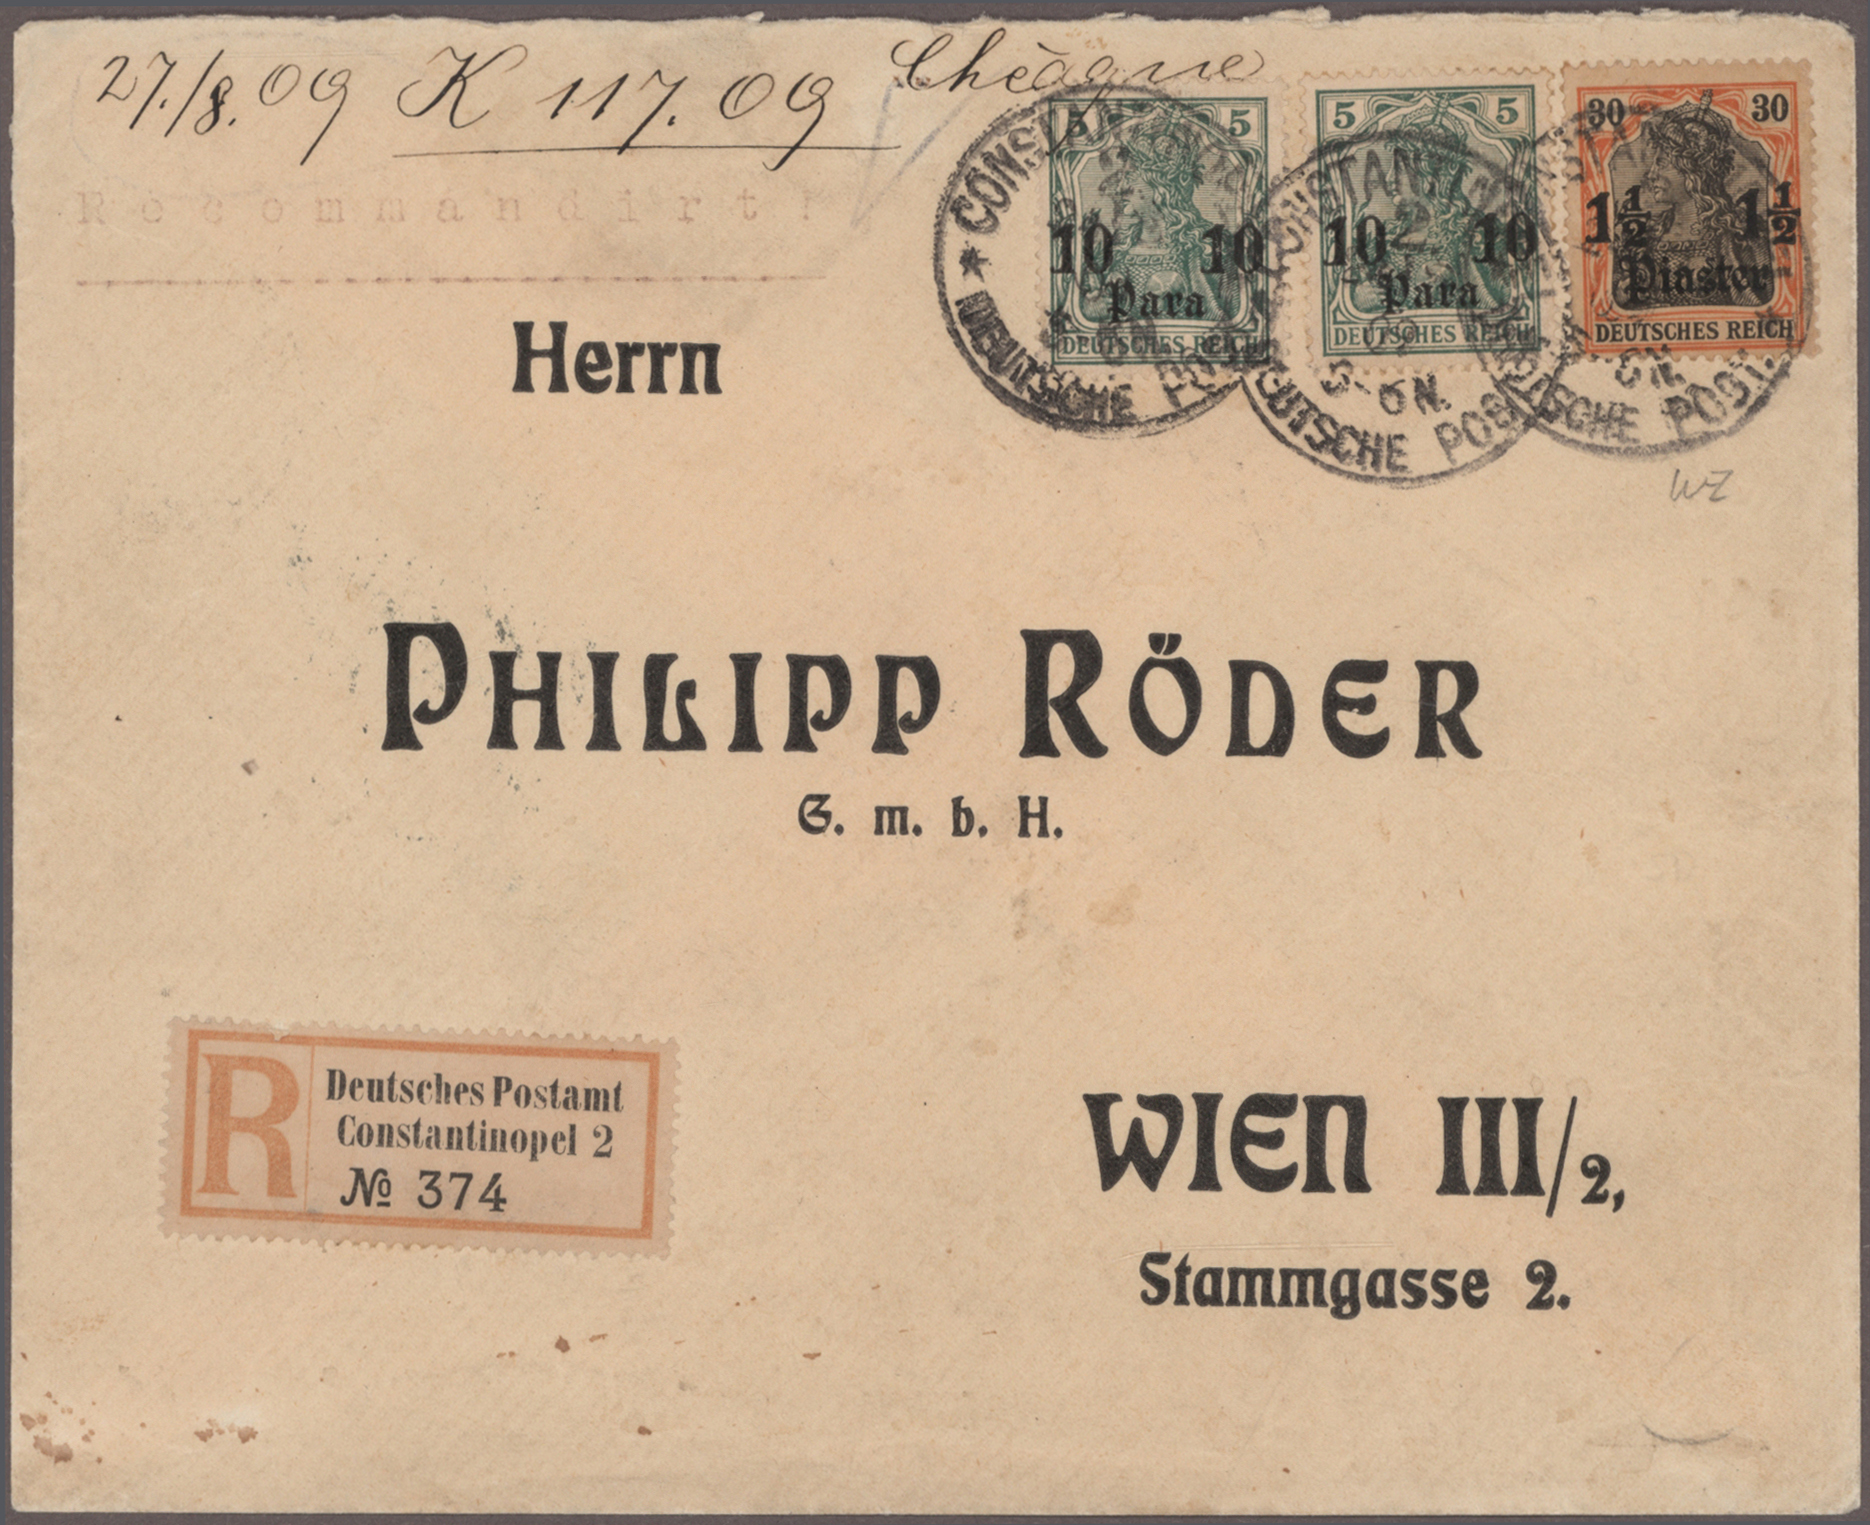 27./8. 09 K 117. 09 Chèque
Recommandirt!
5 5
10 10
Para
DEUTSCHES REICH
5 5
10 10
Para
DEUTSCHES REICH
30 30
1½ 1½
Piaster
DEUTSCHES REICH
* CONSTAN
DEUTSCHE POST
CONSTANTIN
2
5-6N.
DEUTSCHE POST
6N.
DEUTSCHE POST.
WZ
Herrn
PHILIPP RÖDER
G. m. b. H.
R
Deutsches Postamt
Constantinopel 2
№ 374
WIEN III/2,
Stammgasse 2.